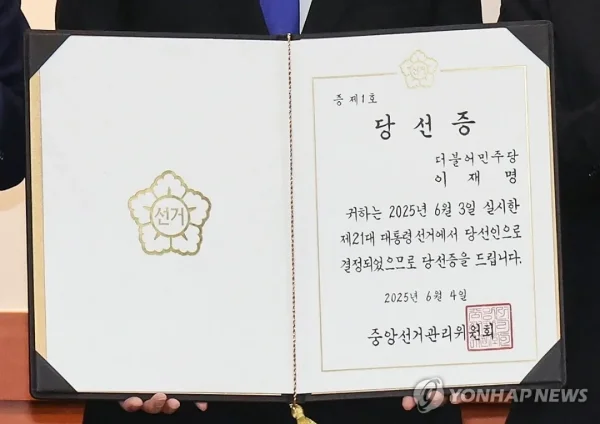 선거
선거
증 제1호
당선증
더불어민주당
이재명
귀하는 2025년 6월 3일 실시한
제21대 대통령선거에서 당선인으로
결정되었으므로 당선증을 드립니다.
2025년 6월 4일
중앙선거관리위원회
YONHAP NEWS